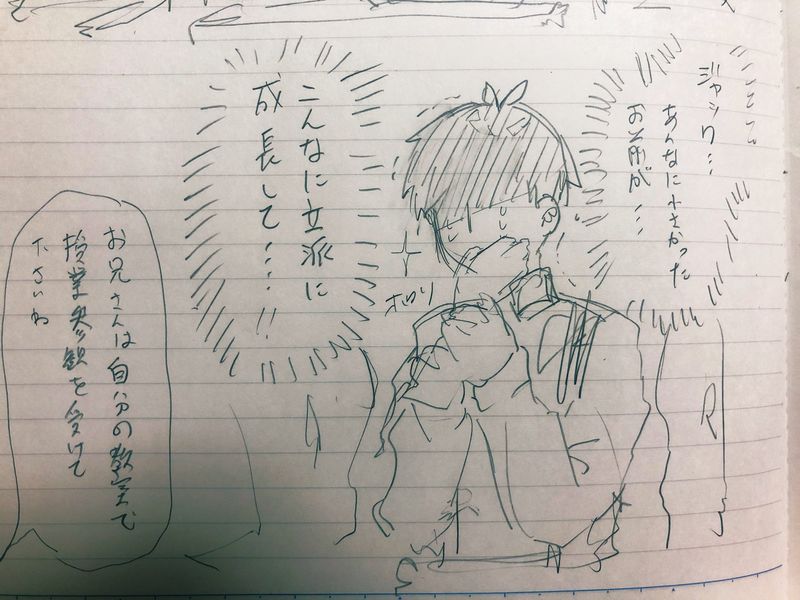 ジャック…
あんなに小さかった
お前が…
こんなに立派に
成長して…!!
ホロリ
お兄さんは自分の教室で
授業参観を受けて
下さいね